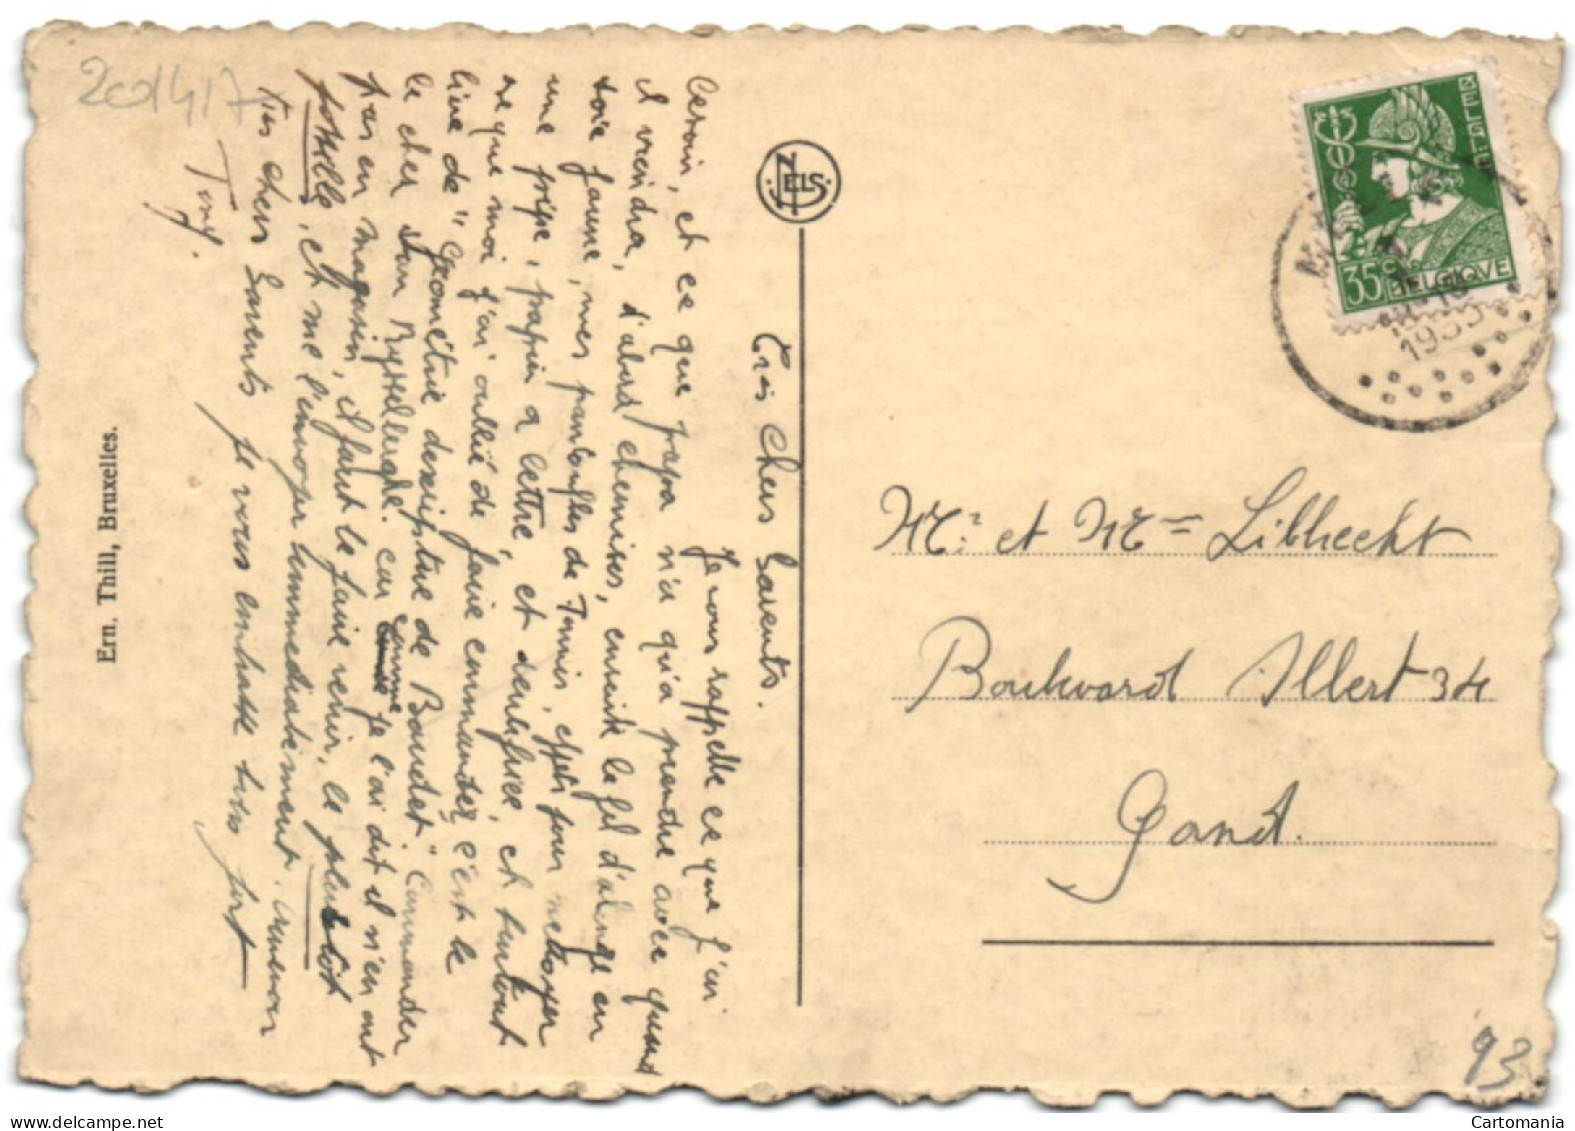 2001417
Très Chers Parents.
Je vous rappelle ce que j'ai
besoin, et ce que papa n'a qu'à prendre avec quand
il viendra, d'abord chemises, ensuite le fil d'alonge en
soie jaune, mes pantoufles de Tennis, effets pour nettoyer
une pipe, papier à lettre, et dentifrice, et surtout
ce que moi j'ai oublié de faire commander c'est le
livre de "Géométrie descriptive de Boudet" Commander
le cher Van Rysselberghe. car comme je l'ai dit il n'en ont
pas en magasin, il faut le faire venir, le plus tôt
possible, et me l'envoyer immediatement.
Très chers Parents je vous embrasse très fort
Tony.
Ern. Thill, Bruxelles.
NELS
BELGIE
35c BELGIQVE
1935
Mr. et Mme Libbrecht
Boulevard Albert 34
Gand.
93
Cartomania